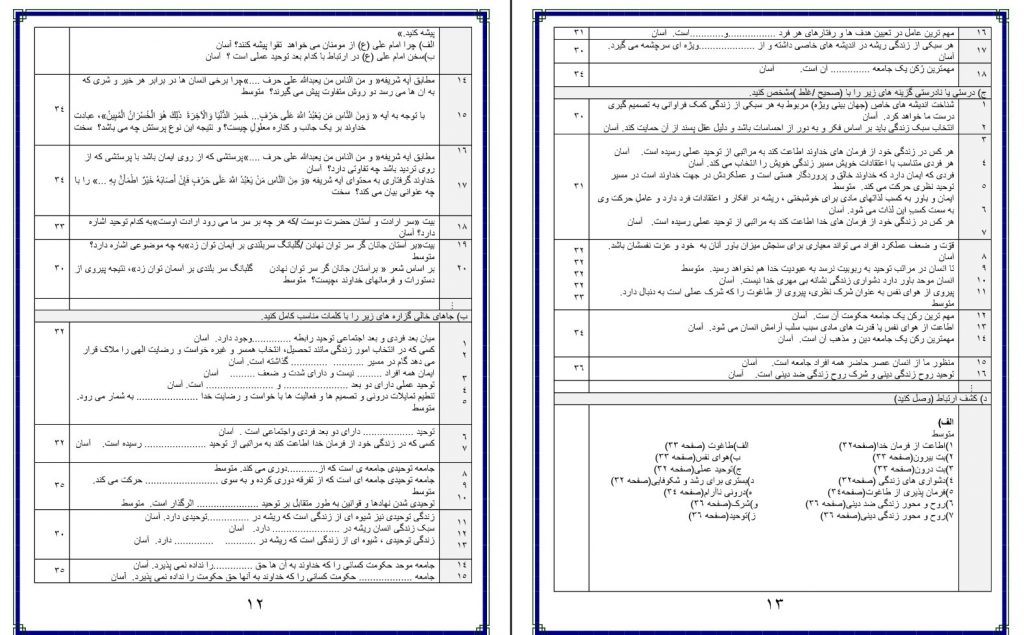 پیشه کنید.»
الف) چرا امام علی (ع) از مومنان می خواهد تقوا پیشه کنند؟ آسان
ب)سخن امام علی (ع) در ارتباط با کدام بعد توحید عملی است؟ آسان
۱۴ مطابق ایه شریفه« و من الناس من یعبدالله علی حرف ....»چرا برخی انسان ها در برابر هر خیر و شری که
به ان ها می رسد دو روش متفاوت پیش می گیرند؟ متوسط
۳۴
۱۵ با توجه به ایه « وَمِنَ النَّاسِ مَن یَعبدُاللهَ عَلی حَرفٍ... خَسِرَ الدُّنْیَا وَالْآخِرَةَ ذَلِكَ هُوَ الْخُسْرَانُ الْمُبِینُ»، عبادت
خداوند بر یک جانب و کناره معلول چیست؟ و نتیجه این نوع پرستش چه می باشد؟ سخت
۱۶ مطابق ایه شریفه« و من الناس من یعبدالله علی حرف ....»پرستشی که از روی ایمان باشد با پرستشی که از
روی تردید باشد چه تفاوتی دارد؟ آسان
۱۷ خداوند گرفتاری به محتوای ایه شریفه «وَ مِنَ النَّاسِ مَنْ یَعْبُدُ اللهَ عَلَی حَرْفٍ فَإِنْ أَصَابَهُ خَیْرٌ اطْمَأَنَّ بِهِ ...» را با ۳۴
چه عنوانی بیان می کند؟ سخت
۱۸ بیت «سر ارادت و آستان حضرت دوست /که هر چه بر سر ما می رود ارادت اوست»به کدام توحید اشاره ۳۳
دارد؟ آسان
۱۹ بیت«بر آستان جانان گر سر توان نهادن /گلبانگ سربلندی بر آیمان توان زد»به چه موضوعی اشاره دارد؟
متوسط
۲۰ بر اساس شعر « برآستان جانان گر سر توان نهادن گلبانگ سر بلندی بر آسمان توان زد»، نتیجه پیروی از ۳۰
دستورات و فرمانهای خداوند ،چیست؟ متوسط
⋮
ب) جاهای خالی گزاره های زیر را با کلمات مناسب کامل کنید.
۳۲
۱ میان بعد فردی و بعد اجتماعی توحید رابطه .............وجود دارد. آسان
۲ کسی که در انتخاب امور زندگی مانند تحصیل، انتخاب همسر و غیره خواست و رضایت الهی را ملاک قرار
می دهد گام در مسیر ........... ........... گذاشته است. آسان
۳ ایمان همه افراد ......... نیست و دارای شدت و ضعف ......... آسان
۴ توحید عملی دارای دو بعد ................. و ................. است. آسان
۵ تنظیم تمایلات درونی و تصمیم ها و فعالیت ها با خواست و رضایت خدا ..................... به شمار می رود.
متوسط
۶ توحید ................. دارای دو بعد فردی واجتماعی است . آسان
۷ کسی که در زندگی خود از فرمان خدا اطاعت کند به مراتبی از توحید .................... رسیده است. آسان ۳۲
۸ جامعه توحیدی جامعه ی است که از...........دوری می کند. متوسط
۹ جامعه توحیدی جامعه ای است که از تفرقه دوری کرده و به سوی ..................... حرکت می کند. ۳۵
متوسط
۱۰ توحیدی شدن نهادها و قوانین به طور متقابل بر توحید ..................... اثرگذار است. متوسط
۱۱ زندگی توحیدی نیز شیوه ای از زندگی است که ریشه در ...............توحیدی دارد. آسان
۱۲ سبک زندگی انسان ریشه در ....................... دارد. آسان ۳۰
۱۳ زندگی توحیدی ، شیوه ای از زندگی است که ریشه در ........... ............. دارد. آسان
۱۴ جامعه موحد حکومت کسانی را که خداوند به آن ها حق .............را نداده نمی پذیرد. آسان
۱۵ جامعه ................. حکومت کسانی را که خداوند به آنها حق حکومت را نداده نمی پذیرد. آسان ۳۵
۱۲
۱۶ مهم ترین عامل در تعیین هدف ها و رفتارهای هر فرد ................و............است. آسان ۳۱
۱۷ هر سبکی از زندگی ریشه در اندیشه های خاصی داشته و از ...................ویژه ای سرچشمه می گیرد. ۳۰
آسان
۱۸ مهمترین رُکن یک جامعه ............... آن است. آسان ۳۴
ج) درستی یا نادرستی گزینه های زیر را با (صحیح /غلط )مشخص کنید.
۱ شناخت اندیشه های خاص (جهان بینی ویژه) مربوط به هر سبکی از زندگی کمک فراوانی به تصمیم گیری
درست ما خواهد کرد. آسان ۳۰
۲ انتخاب سبک زندگی باید بر اساس فکر و به دور از احساسات باشد و دلیل عقل پسند از آن حمایت کند. آسان
۳ هر کس در زندگی خود از فرمان های خداوند اطاعت کند به مراتبی از توحید عملی رسیده است. آسان
۴ هر فردی متناسب با اعتقادات خویش مسیر زندگی خویش را انتخاب می کند. آسان
۵ فردی که ایمان دارد که خداوند خالق و پروردگار هستی است و عملکردش در جهت خداوند است در مسیر ۳۱
توحید نظری حرکت می کند. متوسط
۶ ایمان و باور به کسب لذاتهای مادی برای خوشبختی ، ریشه در افکار و اعتقادات فرد دارد و عامل حرکت وی
به سمت کسب این لذات می شود. آسان
۷ هر کس در زندگی خود از فرمان های خدا اطاعت کند به مراتبی از توحید عملی رسیده است. آسان
۸ قوّت و ضعف عملکرد افراد می تواند معیاری برای سنجش میزان باور آنان به خود و عزت نفسشان باشد. ۳۲
آسان ۳۲
۹ تا انسان در مراتب توحید به ربوبیت نرسد به عبودیت خدا هم نخواهد رسید. متوسط ۳۲
۱۰ انسان موحد باور دارد دشواری زندگی نشانه بی مهری خدا نیست. آسان ۳۲
۱۱ پیروی از هوای نفس به عنوان شرک نظری، پیروی از طاغوت را که شرک عملی است به دنبال دارد. ۳۳
متوسط
۱۲ مهم ترین رکن یک جامعه حکومت آن ست. آسان
۱۳ اطاعت از هوای نفس یا قدرت های مادی سبب سلب آرامش انسان می شود. آسان ۳۴
۱۴ مهمترین رکن یک جامعه دین و مذهب آن است. آسان
۱۵ منظور ما از انسان عصر حاضر همه افراد جامعه است. آسان
۱۶ توحید روح زندگی دینی و شرک روح زندگی ضد دینی است. آسان ۳۶
⋮
د) کشف ارتباط (وصل کنید)
الف)
متوسط
۱)اطاعت از فرمان خدا(صفحه۳۲) الف)طاغوت (صفحه ۳۳)
۲)بت بیرون(صفحه ۳۳) ب)هوای نفس(صفحه ۳۳)
۳)بت درون(صفحه ۳۳) ج)توحید عملی(صفحه ۳۲)
۴)دشواری های زندگی (صفحه۳۲) د)بستری برای رشد و شکوفایی(صفحه ۳۲)
۵)فرمان پذیری از طاغوت(صفحه۳۴) ه)درونی ناآرام(صفحه ۳۴)
۶)روح و محور زندگی ضد دینی(صفحه ۳۶) و)شرک(صفحه ۳۶)
۷)روح و محور زندگی دینی(صفحه ۳۶) ز)توحید(صفحه ۳۶)
۱۳